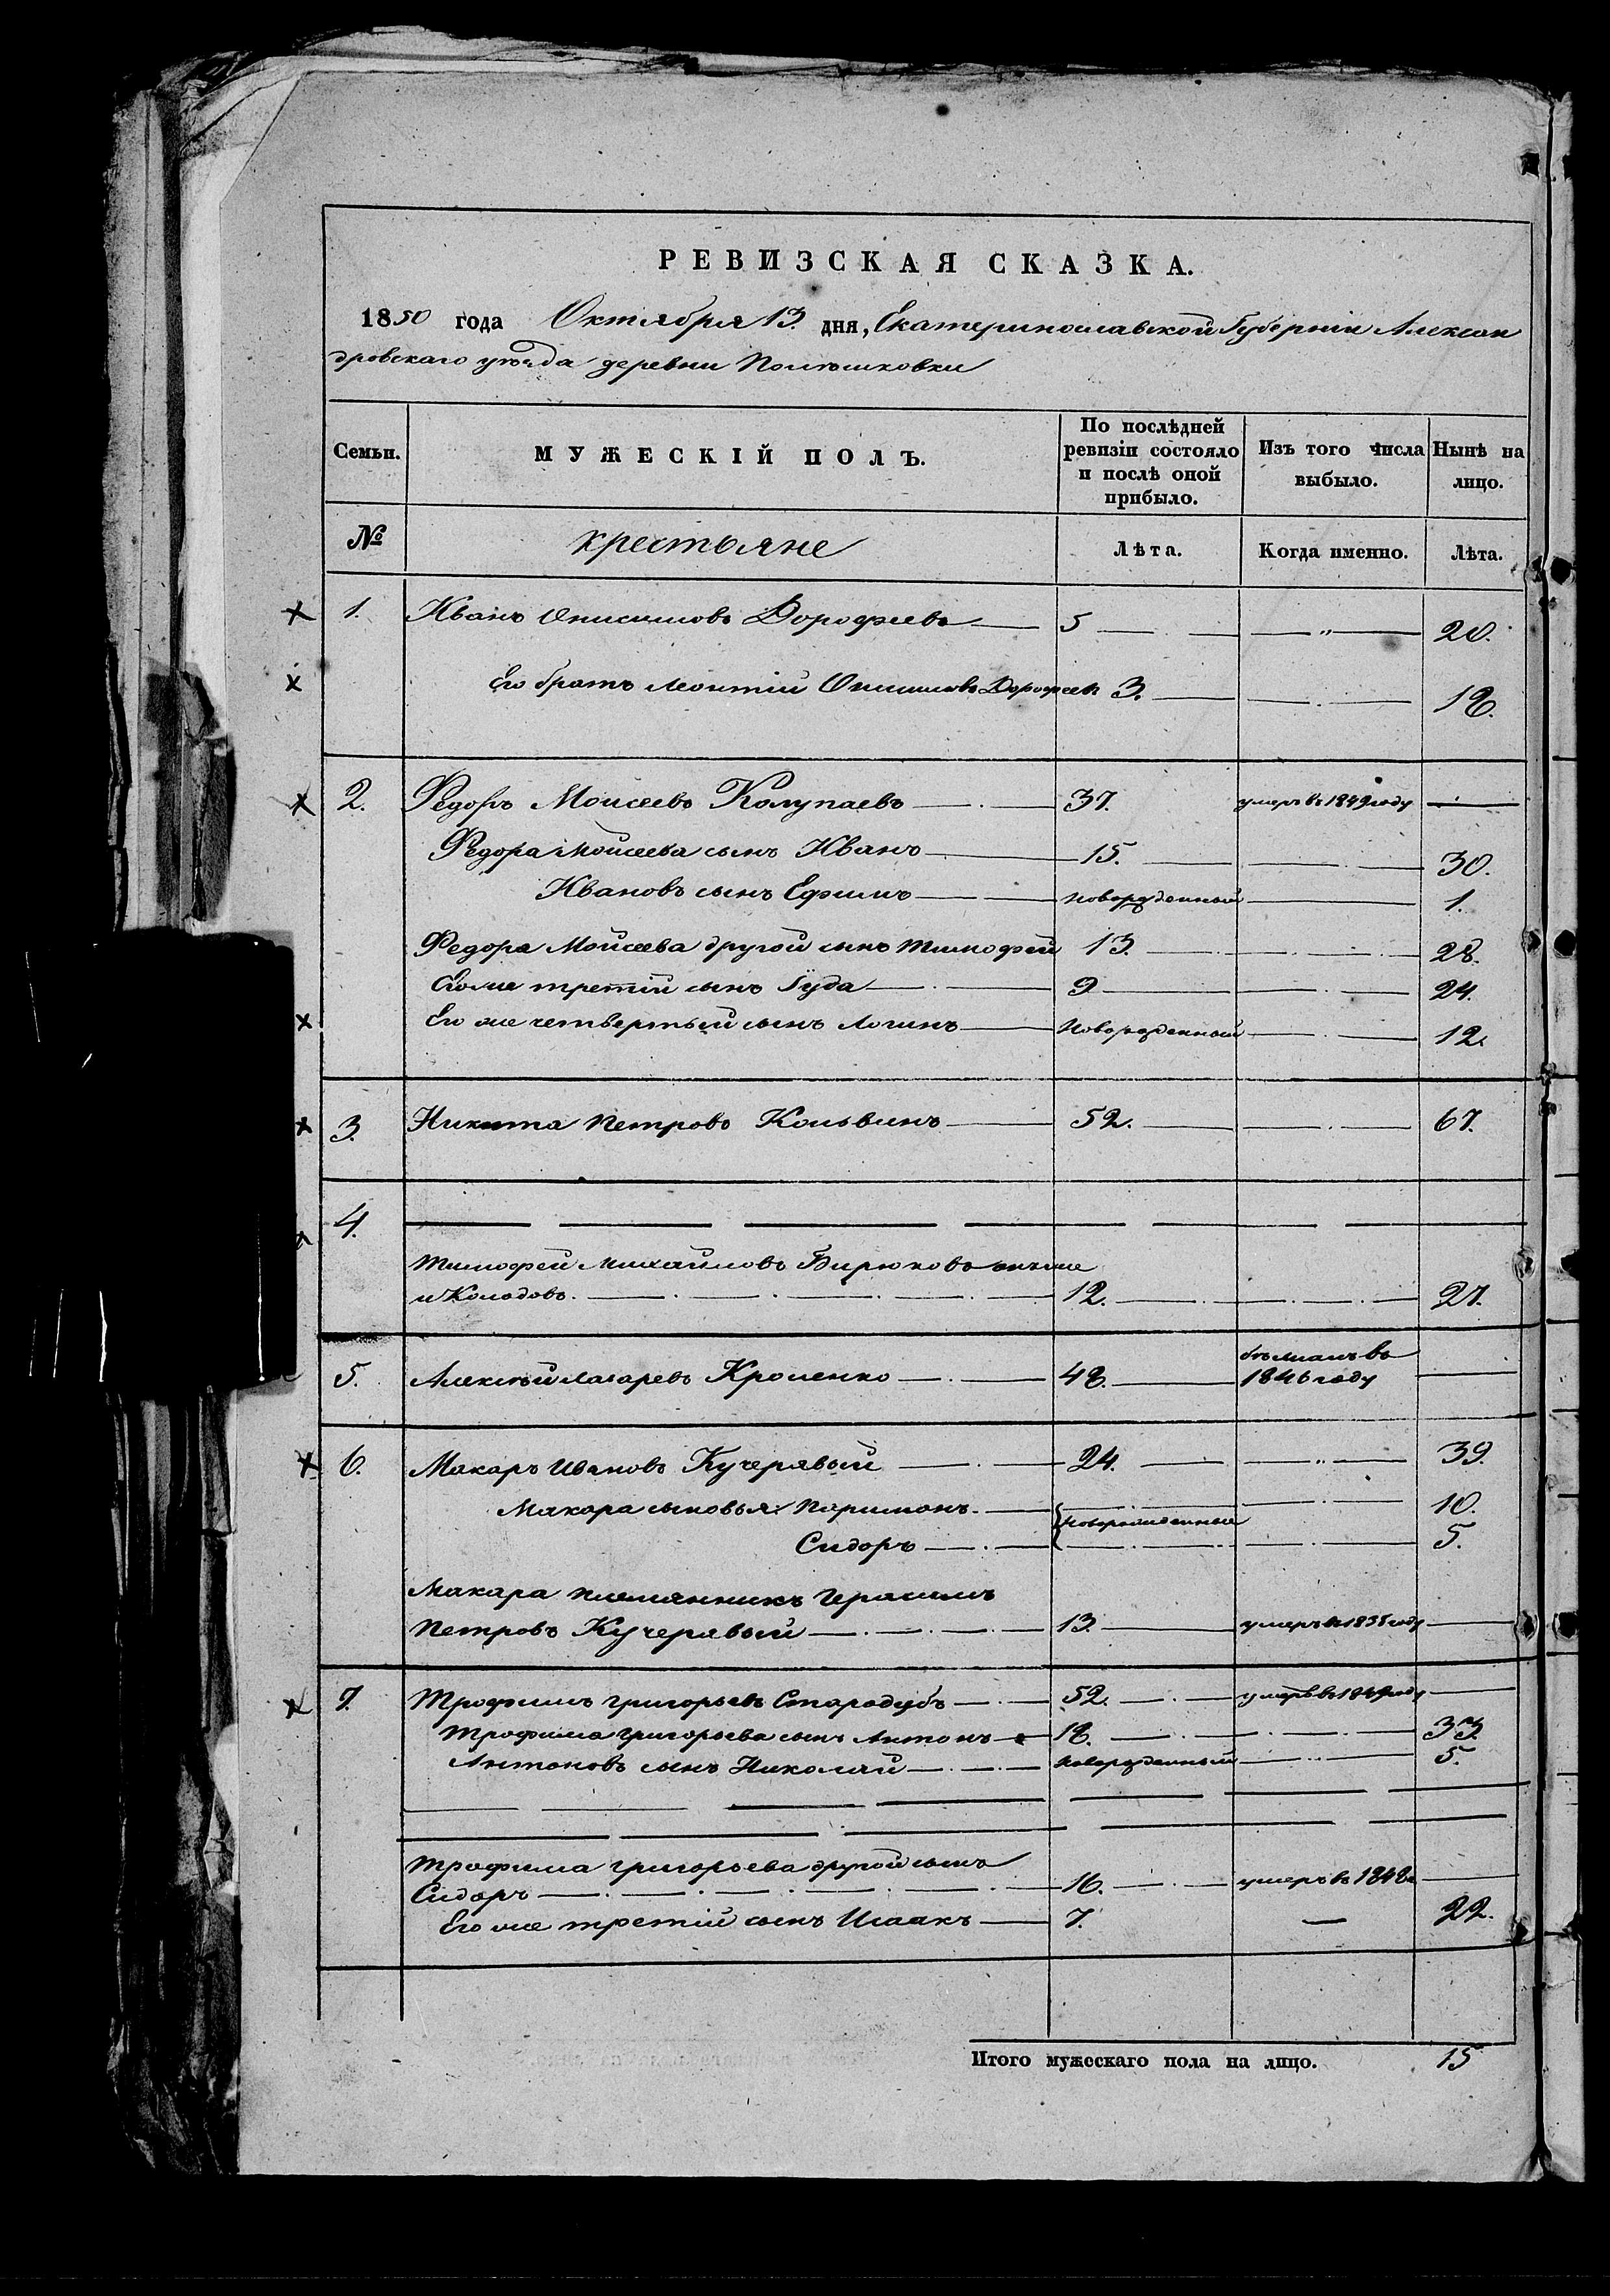 РЕВИЗСКАЯ СКАЗКА.
1850 года Октября 13. дня, Екатеринославской Губерніи Алексан
дровскаго уѣзда деревни
Семьи.
МУЖЕСКІЙ ПОЛЪ.
По послѣдней
ревизіи состояло
и послѣ оной
прибыло.
Изъ того числа
выбыло.
Нынѣ на
лицо.
№
крестьяне
Лѣта.
Когда именно.
Лѣта.
1. Иванъ Онисимовъ Дорофѣевъ 5 20.
Его братъ Леонтій Онисимовъ Дорофѣевъ 3. 18.
2. Федоръ Моисеевъ Колупаевъ 37. умеръ въ 1849 году
Федора Мойсеева сынъ Иванъ 15. 30.
Ивановъ сынъ Ефимъ новорожденный 1.
Федора Мойсеева другой сынъ Тимофей 13. 28.
Его же третій сынъ Іуда 9 24.
Его же четвертый сынъ Логинъ Новорожденный 12.
3. Никита Петровъ 52. 67.
4.
Тимофей Михайловъ Бирюковъ онъ же
и Колодовъ. 12. 27.
5. Алексѣй Лазаревъ 48. бѣжалъ въ
1846 году
6. Макаръ Ивановъ Кучерявый 24. 39.
Макара сыновья: Паримонъ. 10.
новорожденные
Сидоръ 5.
Макара племянникъ Герасимъ
Петровъ Кучерявый 13. умеръ въ 1838 году
7. Трофимъ Григорьевъ Стародубъ 52. умеръ въ 1849 году
Трофима Григорьева сынъ Антонъ 18. 33.
Антоновъ сынъ Николай новорожденный 5.
Трофима Григорьева другой сынъ
Сидоръ 16. умеръ въ 1848
Его же третій сынъ Исаакъ 7. 22.
Итого мужескаго пола на лицо. 15